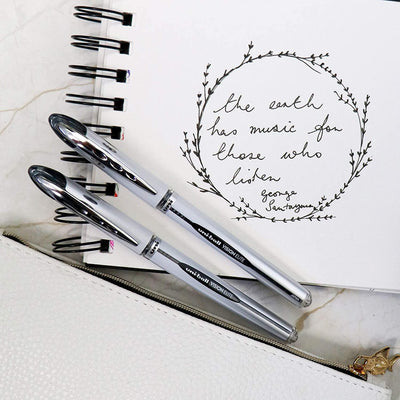 the earth
has music for
those who
listen
George
Santayana
uni-ball VISION ELITE
uni-ball VISION ELITE